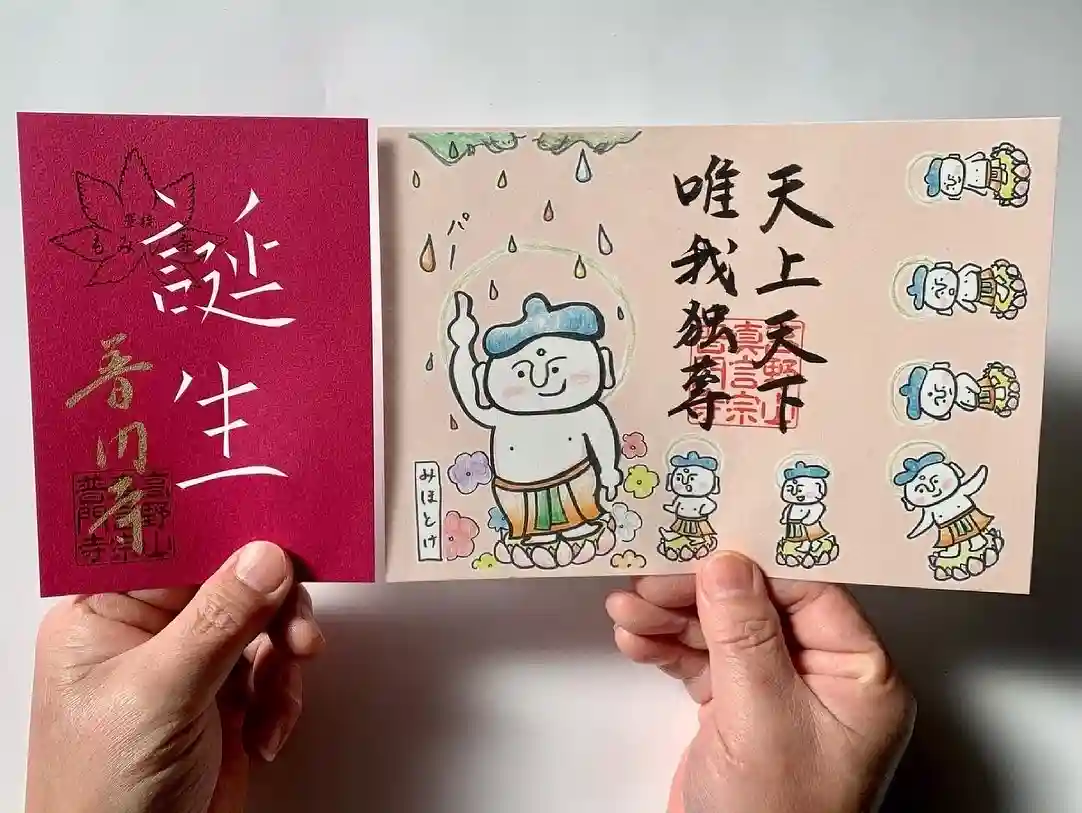 もみじ寺
誕生
普門寺
高野山
真言宗
普門寺
天上天下
唯我独尊
高野山
真言宗
普門寺
パー
みほとけ